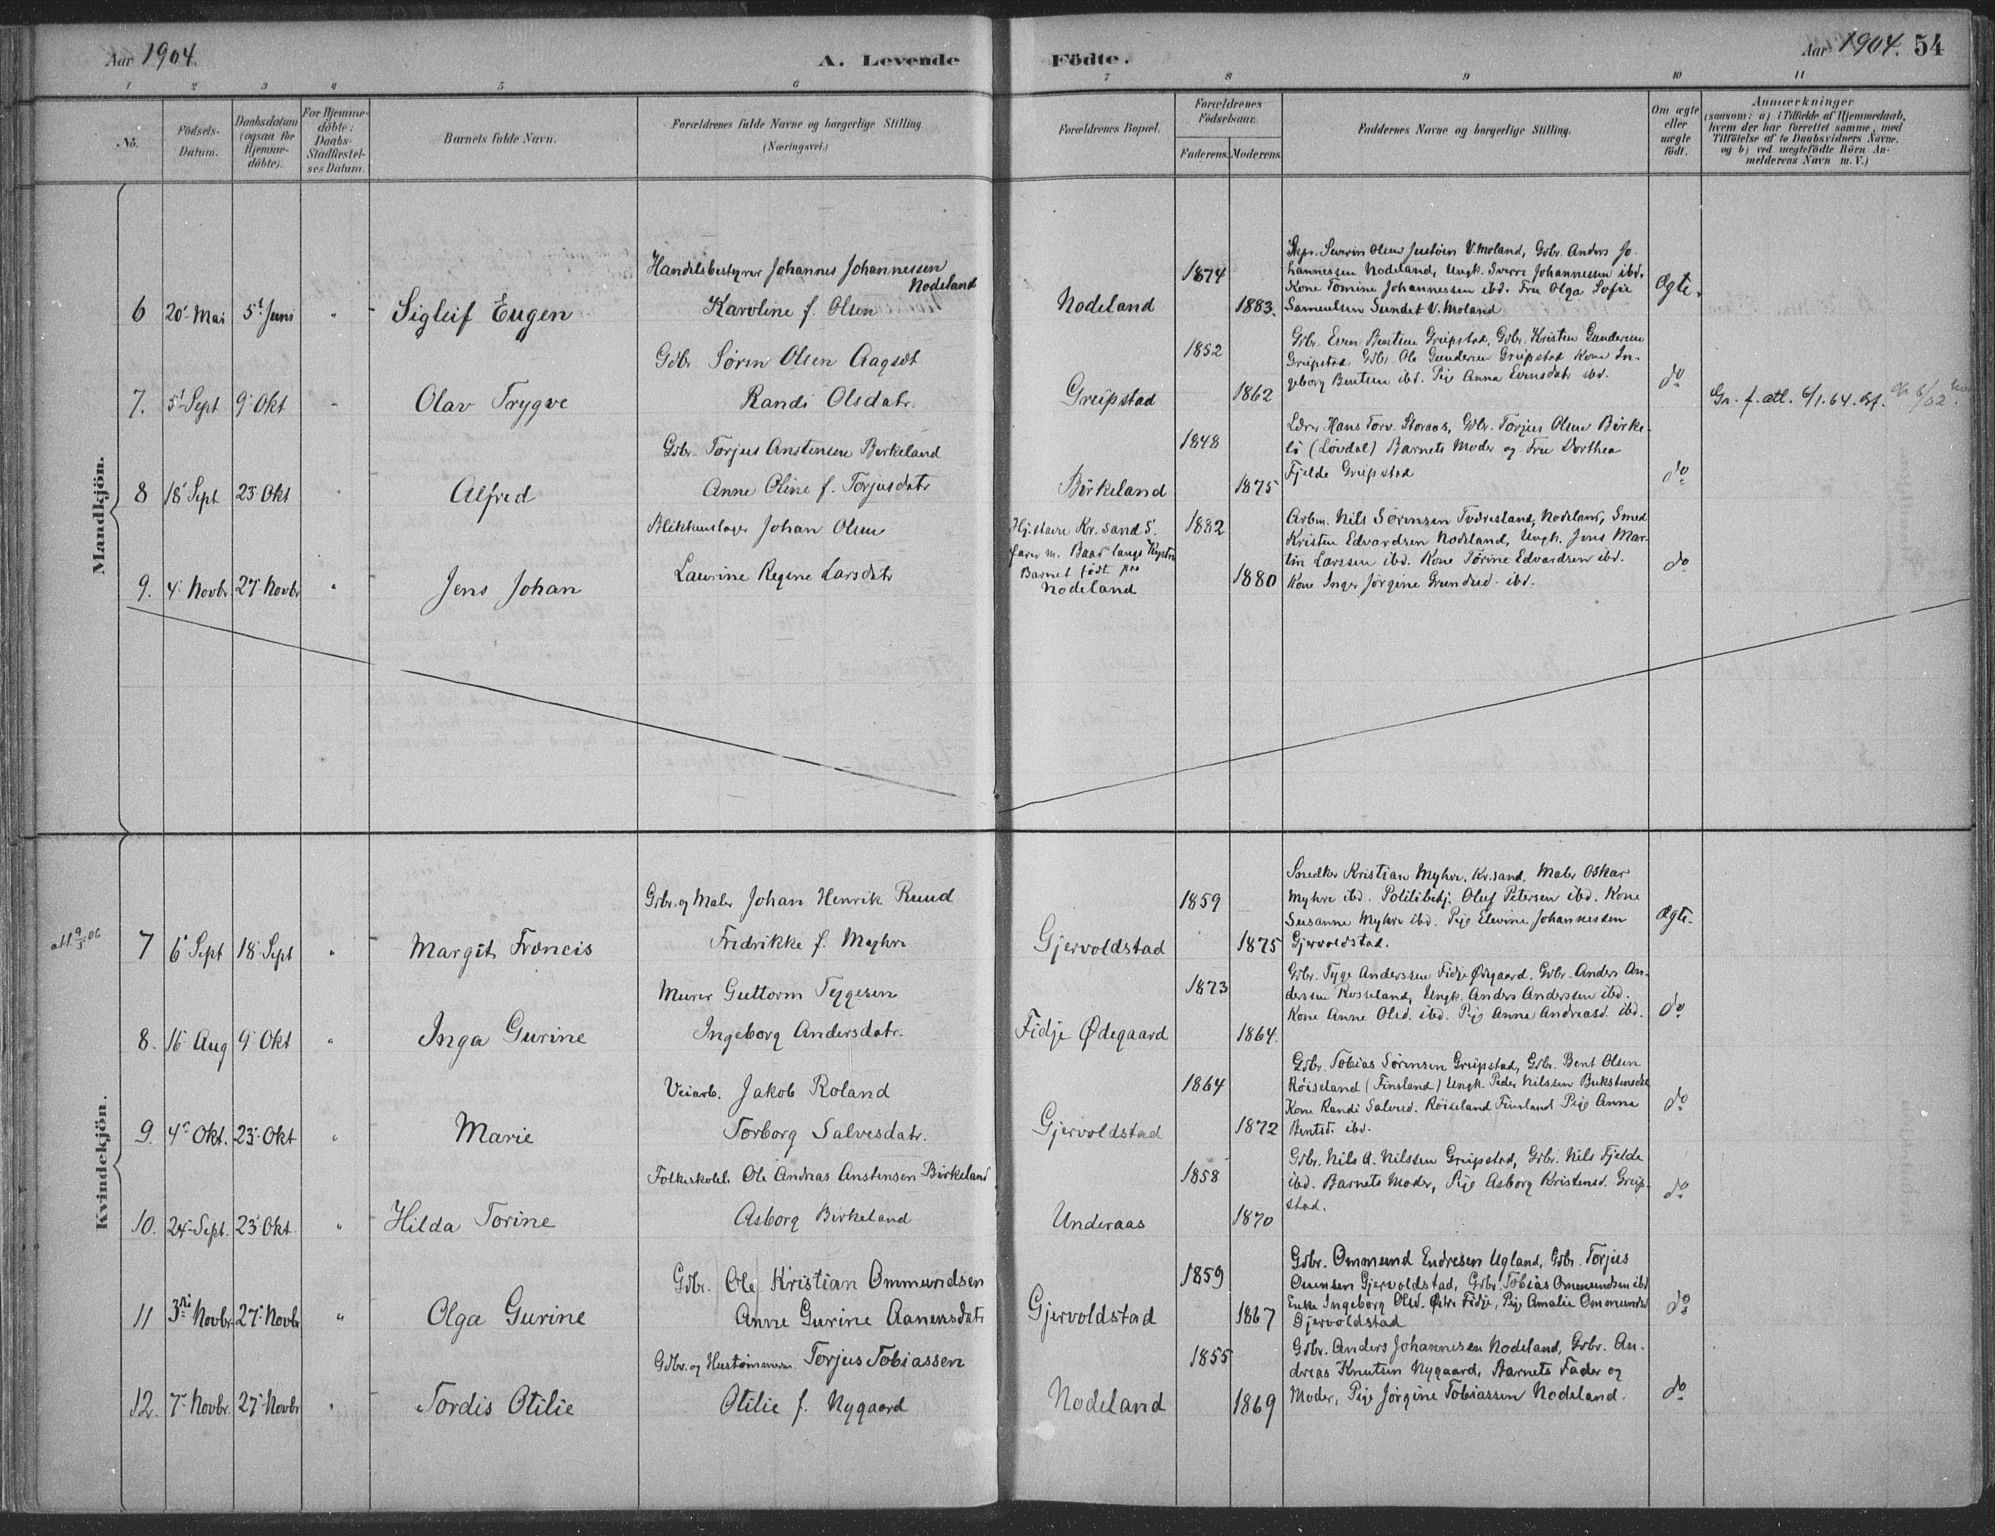 Aar 1904.
A. Levende Födte.
Aar 1904. 54
1 2 3 4 5 6 7 8 9 10 11
No.
Födsels-Datum.
Daabsdatum (ogsaa for Hjemme-döbte).
For Hjemme-döbte: Daabs-Stadfæstel-ses Datum.
Barnets fulde Navn.
Forældrenes fulde Navne og borgerlige Stilling.
(Næringsvei.)
Forældrenes Bopæl.
Forældrenes Födselsaar.
Faderens. Moderens.
Faddernes Navne og borgerlige Stilling.
Om ægte eller uægte födt.
Anmærkninger
(saasom: a) i Tilfælde af Hjemmedaab,
hvem der har forrettet samme, med
Tilföielse af to Daabsvidners Navne,
og b) ved uægtefödte Börn An-
melderens Navn m. V.)
Mandkjön.
Handelsbestyrer Johannes Johannessen
Nodeland
6 20 Mai 5t Juni " Sigleif Eugen
Karoline f. Olsen
Nodeland
1874
1883.
Severin Olsen Justøen V. Moland, Gdbr. Anders Jo
hannessen Nodeland, Ungk. Sverre Johannessen ibd.
Kone Tomine Johannessen ibd. Fru Olga Sofie
Samuelsen Sundet V. Moland
Ægte.
Gdbr Søren Olsen Aagsdt
7. 5t Sept 9. Okt - Olav Trygve
Randi Olsdatr.
Greipstad
1852
1862
Gdbr. Even Bentsen Greipstad, Gdbr. Kristen Gundersen
Greipstad Gdbr. Ole Gundersen Greipstad Kone In-
geborg Bentsen ibd. Pige Anna Evensdatr ibd.
do
Gr. f. att. 6/1.64.
Gdbr. Torjus Anstensen Birkeland
8 18 Sept 23 Okt " Alfred
Anne Oline f. Torjusdatr
Birkeland
1848
1875
Lærer Hans Torv. Storaas, Gdbr. Torjus Olsen Birke-
li (Løvdal) Barnets Moder og Fru Dorthea
Fjelde Greipstad
do
Blikkenslager Johan Olsen
9. 4. Novbr 27. Novbr " Jens Johan
Laurine Regine Larsdatr
Hj.stavn Kr.sand S.
farer m. Baad langs Kysten
Barnet født paa
Nodeland
1882
1880
Arbm. Nils Sørensen Tveresland, Nodeland, Smed
Kristen Edvardsen Nodeland, Ungk. Jens Mar-
tin Larssen ibd. Kone Tørine Edvardsen ibd.
Kone Inger Jørgine ibd.
do
Kvindekjön.
Gdbr. og Maler Johan Henrik Ruud
att 9/5 06
7 6 Sept 18 Sept " Margit Francis
Fredrikke f. Myhre
Gjervoldstad
1859
1875
Snedker Kristian Myhre. Kr.sand, Maler Oskar
Myhre ibd. Politibetj. Oluf Petersen ibd. Kone
Susanne Myhre ibd. Pige Elevine Johannessen
Gjervoldstad.
Ægte.
Murer Guttorm Tygesen
8. 16 Aug 9 Okt " Inga Gurine
Ingeborg Andersdatr.
Fidje Ødegaard
1873
1864.
Gdbr. Tyge Anderssen Fidje Ødegaard, Gdbr. Anders An-
derssen Rosseland, Ungk. Anders Anderssen ibd.
Kone Anne Olsd. ibd. Pige Anne Andreasd. ibd.
do
Veiarb. Jakob Roland
9. 4 Okt. 23 Okt " Marie
Torborg Salvesdatr.
Gjervoldstad
1864
1872
Gdbr. Tobias Sørensen Greipstad, Gdbr. Bent Olsen
Røiseland (Finsland) Ungk. Peder Nilssen
Kone Randi Salvesd. Røiseland Finsland Pige Anna
Bentsd. ibd.
do
Folkeskolel. Ole Andreas Anstensen Birkeland
10. 24 Sept. 23 Okt. " Hilda Torine
Asborg Birkeland
Underaas
1858
1870
Gdbr. Nils A. Nilssen Greipstad, Gdbr. Nils Fjelde
ibd. Barnets Moder, Pige Asborg Kristensd. Greip-
stad.
do
Gdbr. Ole Kristian Ommundsen
11 3die Novbr. 27. Novbr " Olga Gurine
Anne Gurine Aanensdatr
Gjervoldstad
1859
1867
Gdbr. Ommund Endresen Ugland, Gdbr. Torjus
Omundsen Gjervoldstad, Gdbr. Tobias Ommundsen ibd
Enke Ingeborg Olsd. Østre Fidje, Pige Amalie Ommundsd
Gjervoldstad
do
Gdbr. og Hustømmerm. Torjus Tobiassen
12. 7. Novbr. 27. Novbr " Tordis Otilie
Otilie f. Nygaard
Nodeland
1855
1869
Gdbr. Anders Johannesen Nodeland, Gdbr. An-
dreas Knutsen Nygaard, Barnets Fader og
Moder, Pige Jørgine Tobiassen Nodeland.
do